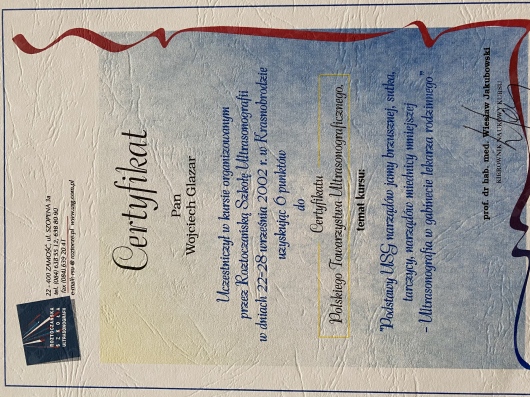 ROZTOCZAŃSKA
SZKOŁA
ULTRASONOGRAFII
22 - 400 ZAMOŚĆ, ul. SZOPENA 3a
tel. (084) 638 55 12, 638 80 90
fax (084) 639 20 41
Certyfikat
Pan
Wojciech Glazar
Uczestniczył w kursie organizowanym
przez Roztoczańską Szkołę Ultrasonografii
w dniach 22-28 września 2002 r. w Krasnobrodzie
uzyskując 6 punktów
do
Certyfikatu
Polskiego Towarzystwa Ultrasonograficznego.
temat kursu:
"Podstawy USG narządów jamy brzusznej, sutka,
tarczycy, narządów miednicy mniejszej
- Ultrasonografia w gabinecie lekarza rodzinnego"
prof. dr hab. med. Wiesław Jakubowski
KIEROWNIK NAUKOWY KURSU